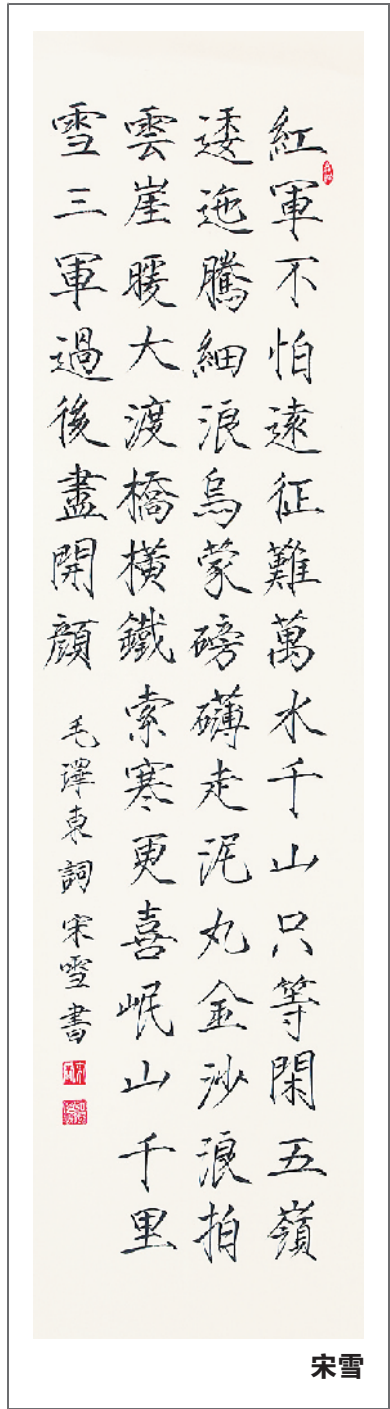 紅軍不怕遠征難萬水千山只等閑五嶺
逶迤騰細浪烏蒙磅礴走泥丸金沙浪拍
雲崖暖大渡橋橫鐵索寒更喜岷山千里
雪三軍過後盡開顏
毛澤東詞宋雪書
宋雪